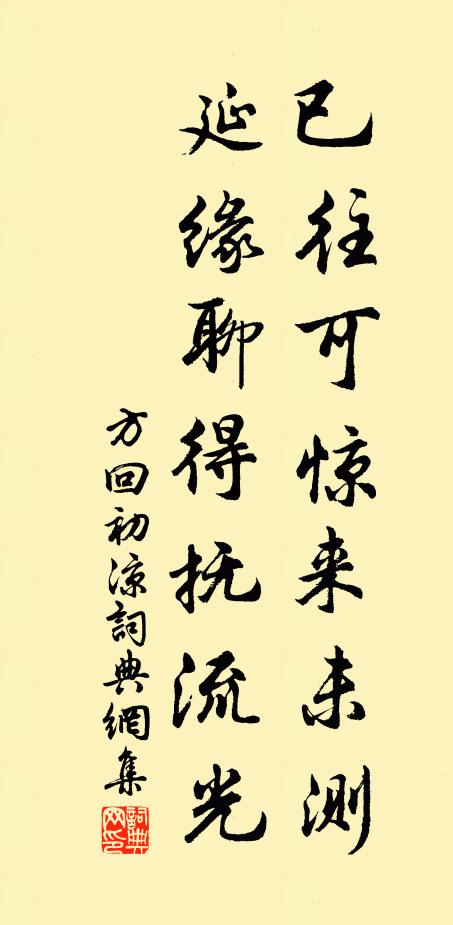 已往可惊来未测
延缘聊得抚流光
方回初凉詞典網集
詞典網印